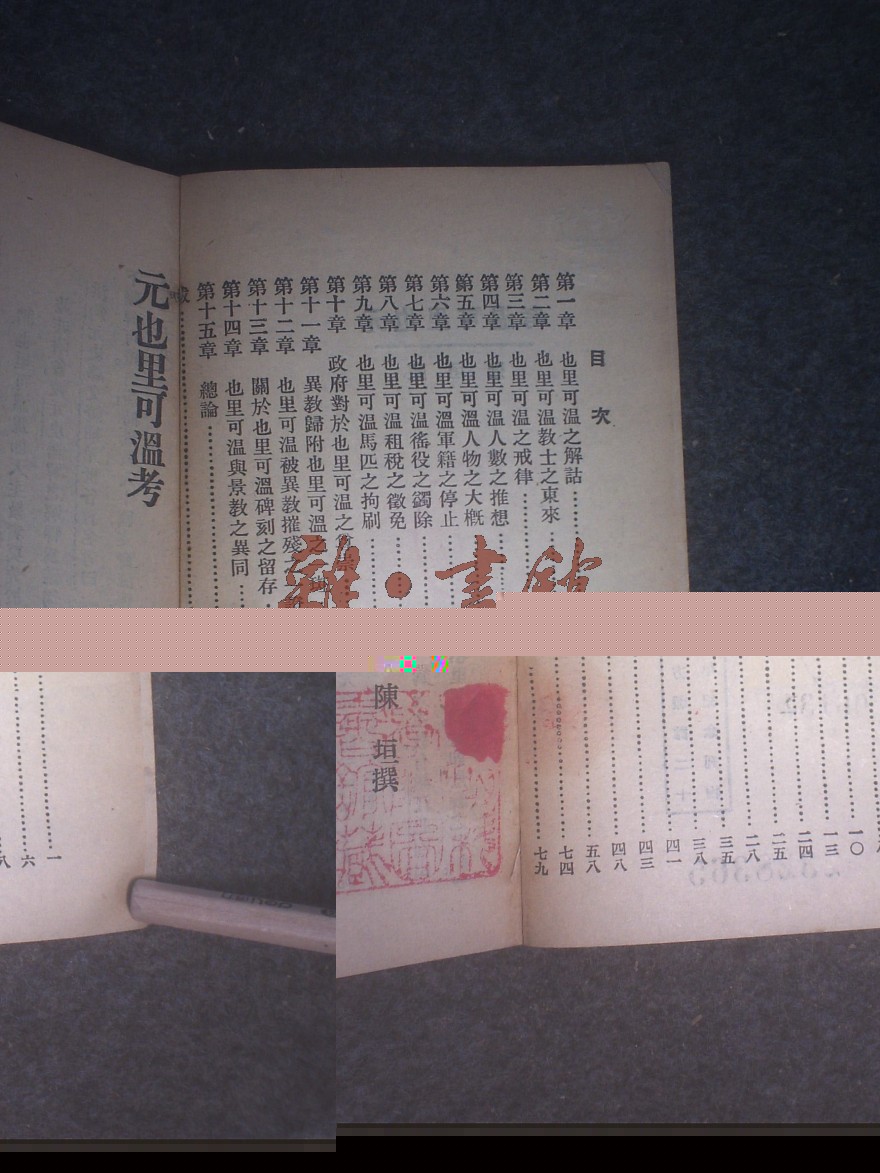 目次
第一章 也里可溫之解詁
第二章 也里可溫教士之東來
第三章 也里可溫之戒律
第四章 也里可溫人數之推想
第五章 也里可溫人物之大概
第六章 也里可溫軍籍之停止
第七章 也里可溫徭役之蠲除
第八章 也里可溫租稅之徵免
第九章 也里可溫馬匹之拘刷
第十章 政府對於也里可溫之
第十一章 異教歸附也里可溫之
第十二章 也里可溫被異教摧殘之
第十三章 關於也里可溫碑刻之留存
第十四章 也里可溫與景教之異同
第十五章 總論
元也里可溫考
書館
一〇
一三
二四
二五
二八
三五
三八
四一
四三
四八
五八
七四
七九
陳垣撰
一
六
八